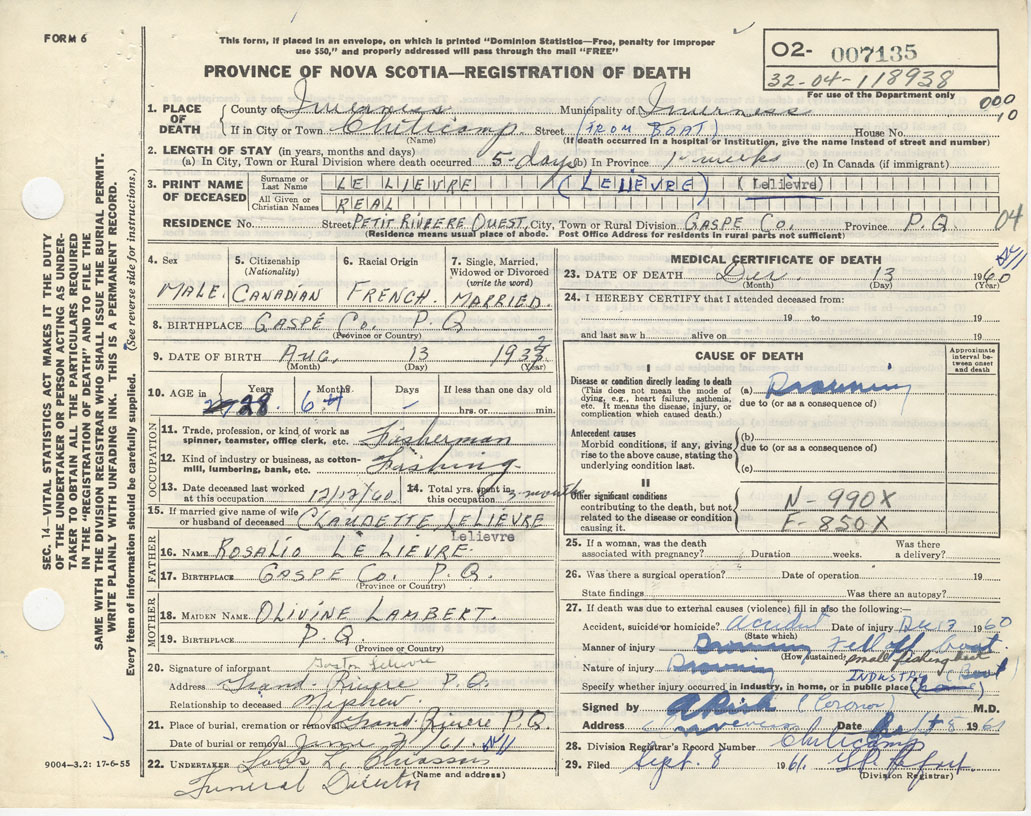 FORM 6
This form, if placed in an envelope, on which is printed "Dominion Statistics—Free, penalty for improper
use $50," and properly addressed will pass through the mail "FREE"
PROVINCE OF NOVA SCOTIA—REGISTRATION OF DEATH
02- 007135
32-04-118938
For use of the Department only
000
10
1. PLACE OF DEATH
County of Inverness Municipality of Inverness
If in City or Town Cheticamp Street (FROM BOAT) House No.
(Name) (If death occurred in a hospital or Institution, give the name instead of street and number)
2. LENGTH OF STAY (in years, months and days)
(a) In City, Town or Rural Division where death occurred 5-days (b) In Province weeks (c) In Canada (if immigrant)
3. PRINT NAME OF DECEASED
Surname or Last Name LE LIEVRE (LELIEVRE) (Lelièvre)
All Given or Christian Names REAL
RESIDENCE No. Street PETIT RIVIERE OUEST, City, Town or Rural Division GASPE CO. Province P.Q.
04
(Residence means usual place of abode. Post Office Address for residents in rural parts not sufficient)
4. Sex
MALE.
5. Citizenship
(Nationality)
CANADIAN
6. Racial Origin
FRENCH.
7. Single, Married, Widowed or Divorced
(write the word)
MARRIED.
8. BIRTHPLACE GASPÉ CO. P.Q.
(Province or Country)
9. DATE OF BIRTH AUG. 13 193
(Month) (Day) (Year)
10. AGE in Years Months Days If less than one day old
28 6 4 – hrs. or min.
OCCUPATION
11. Trade, profession, or kind of work as spinner, teamster, office clerk, etc. Fisherman
12. Kind of industry or business, as cotton-mill, lumbering, bank, etc. Fishing
13. Date deceased last worked at this occupation 12/12/60
14. Total yrs. spent in this occupation 3-months
15. If married give name of wife or husband of deceased CLAUDETTE LELIEVRE
Lelievre
FATHER
16. NAME ROSALIO LE LIEVRE
17. BIRTHPLACE GASPE CO. P.Q.
(Province or Country)
MOTHER
18. MAIDEN NAME OLIVINE LAMBERT.
19. BIRTHPLACE P.Q.
(Province or Country)
20. Signature of informant Gaston Lelievre
Address Grand-Riviere P.Q.
Relationship to deceased Nephew
21. Place of burial, cremation or removal Grand-Riviere P.Q.
Date of burial or removal June 7/61.
22. UNDERTAKER Louis L. Chiasson
(Name and address)
Funeral Director
MEDICAL CERTIFICATE OF DEATH
23. DATE OF DEATH Dec 13 1960
(Month) (Day) (Year)
24. I HEREBY CERTIFY that I attended deceased from:
19 to 19
and last saw h alive on 19
CAUSE OF DEATH
Approximate interval between onset and death
I
Disease or condition directly leading to death
(This does not mean the mode of dying, e.g., heart failure, asthenia, etc. It means the disease, injury, or complication which caused death.)
(a) Drowning
due to (or as a consequence of)
Antecedent causes
Morbid conditions, if any, giving rise to the above cause, stating the underlying condition last.
(b)
due to (or as a consequence of)
(c)
II
Other significant conditions
contributing to the death, but not related to the disease or condition causing it.
N-990X
F-850X
25. If a woman, was the death associated with pregnancy? Duration weeks. Was there a delivery?
26. Was there a surgical operation? Date of operation 19
State findings Was there an autopsy?
27. If death was due to external causes (violence) fill in also the following:—
Accident, suicide or homicide? accident Date of injury Dec 13 1960
(State which)
Manner of injury Drowning Fell off boat
(How sustained) small fishing boat
Nature of injury Drowning INDUSTRY (Boat)
Specify whether injury occurred in industry, in home, or in public place
Signed by (Coroner) M.D.
Address Inverness Date Sept 8 1961
28. Division Registrar's Record Number Cheticamp
29. Filed Sept. 8 1961.
(Division Registrar)
SEC. 14—VITAL STATISTICS ACT MAKES IT THE DUTY
OF THE UNDERTAKER OR PERSON ACTING AS UNDER-
TAKER TO OBTAIN ALL THE PARTICULARS REQUIRED
IN THE "REGISTRATION OF DEATH" AND TO FILE THE
SAME WITH THE DIVISION REGISTRAR WHO SHALL ISSUE THE BURIAL PERMIT.
WRITE PLAINLY WITH UNFADING INK. THIS IS A PERMANENT RECORD.
Every item of information should be carefully supplied. (See reverse side for instructions.)
9004—3.2: 17-6-55